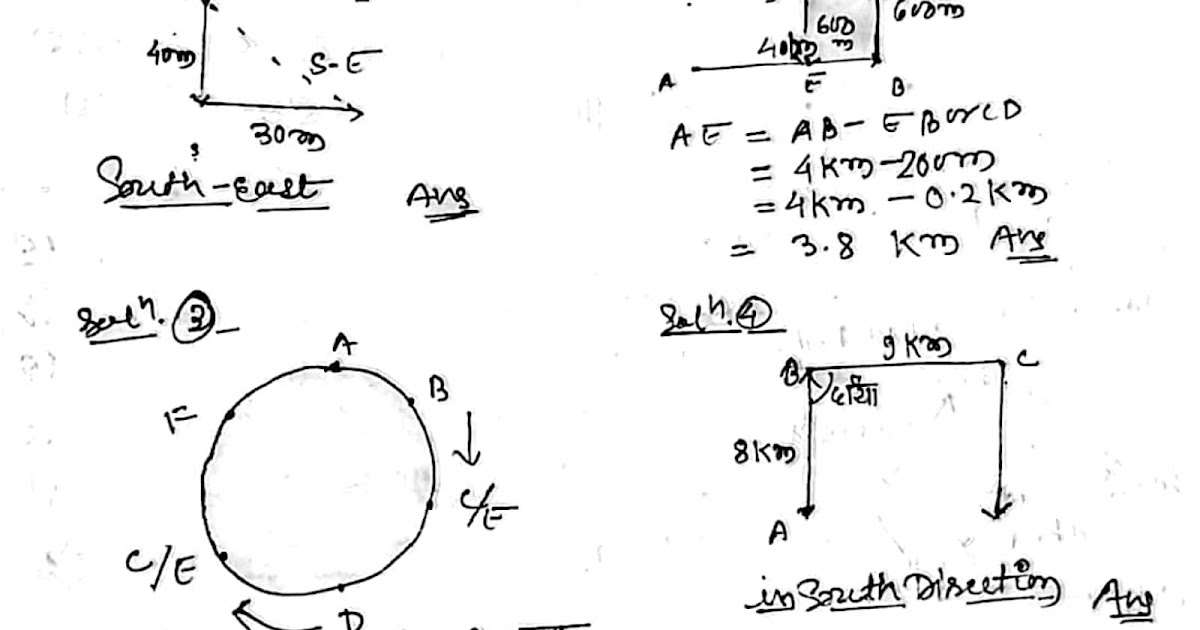 40m
S-E
30m
South-East Ans
600m
600
m
A
E
B
AE = AB - EB or CD
= 4Km - 200m
= 4Km - 0.2Km
= 3.8 Km Ans
Solⁿ. ③
A
B
F
C/E
C/E
D
Solⁿ. ④
9Km
B
C
8Km
A
in South Disection Ans